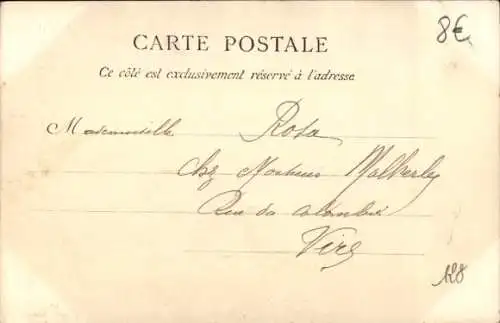 8€
CARTE POSTALE
Ce côté est exclusivement réservé à l'adresse
Mademoiselle Rosa
chz Monsieur Malherbe
Rue du calombier
Vire
128